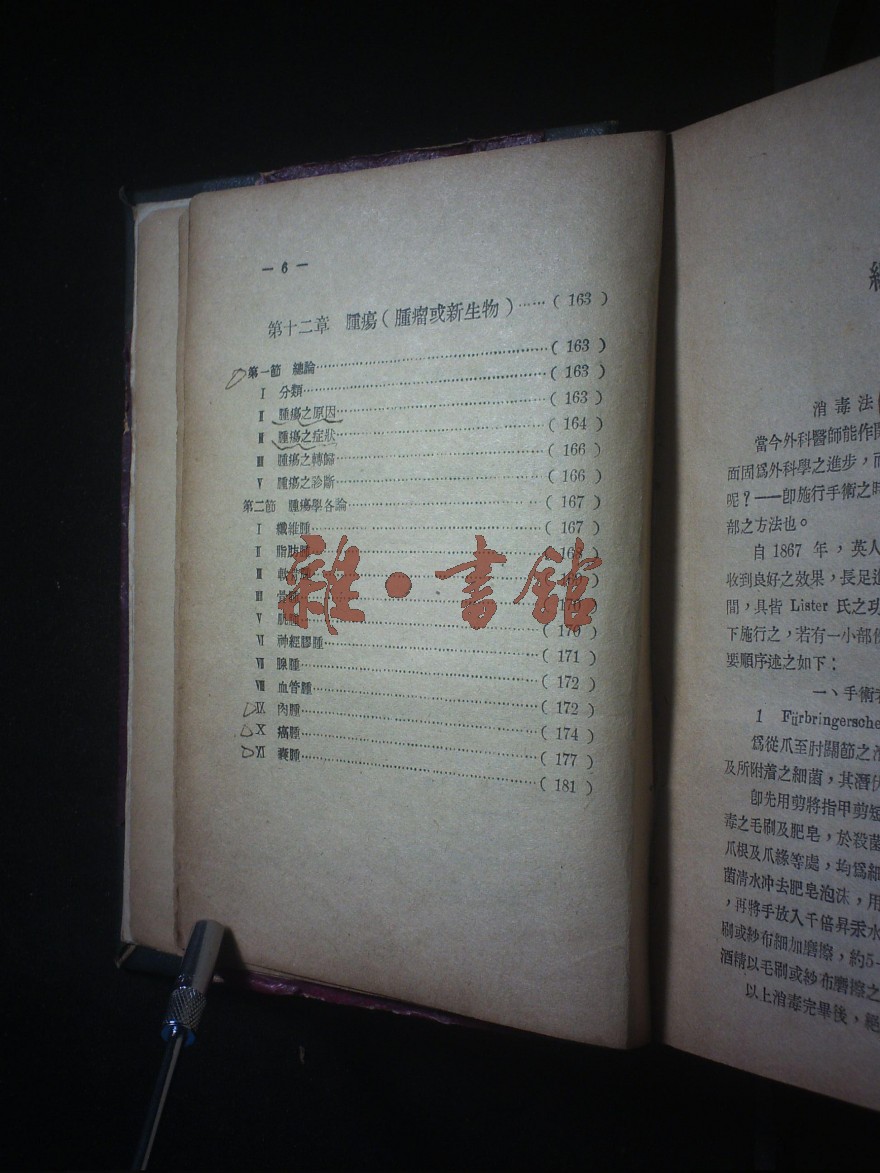 — 6 —
第十二章 腫瘍（腫瘤或新生物）……( 163 )
第一節 總論……( 163 )
I 分類……( 163 )
II 腫瘍之原因……( 163 )
III 腫瘍之症狀……( 164 )
III 腫瘍之轉歸……( 166 )
V 腫瘍之診斷……( 166 )
第二節 腫瘍學各論……( 167 )
I 纖維腫……( 167 )
II 脂肪腫……( 168 )
III 軟骨腫……( 169 )
III 骨腫……( 170 )
V 肌腫……( 170 )
VI 神經膠腫……( 171 )
VII 腺腫……( 172 )
VIII 血管腫……( 172 )
IX 肉腫……( 174 )
X 癌腫……( 177 )
XI 囊腫……( 181 )
雜·書館
消毒法
當今外科醫師能作
面固爲外科學之進步，而
呢？——卽施行手術之時
部之方法也。
自 1867 年，英人
收到良好之效果，長足進
間，具皆 Lister 氏之功
下施行之，若有一小部
要順序述之如下：
一、手術
1 Fürbringersche
爲從爪至肘關節之
及所附着之細菌，其潛伏
卽先用剪將指甲剪短
毒之毛刷及肥皂，於殺菌
爪根及爪緣等處，均爲細
菌淸水冲去肥皂泡沫，用
，再將手放入千倍昇汞水
刷或紗布細加磨擦，約5—
酒精以毛刷或紗布磨擦之
以上消毒完畢後，